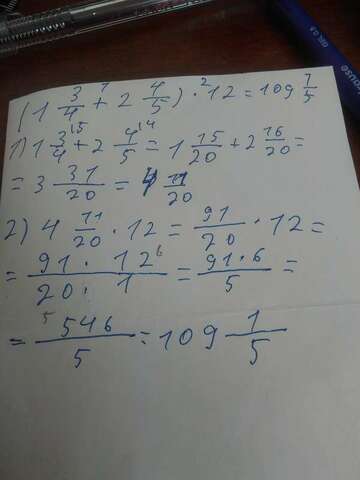 (1 3/4 + 2 4/5) · 12 = 109 1/5
1) 1 3/4 + 2 4/5 = 1 15/20 + 2 16/20 =
= 3 31/20 = 4 11/20
2) 4 11/20 · 12 = 91/20 · 12 =
= 91 · 12 / 20 · 1 = 91 · 6 / 5 =
= 546/5 = 109 1/5